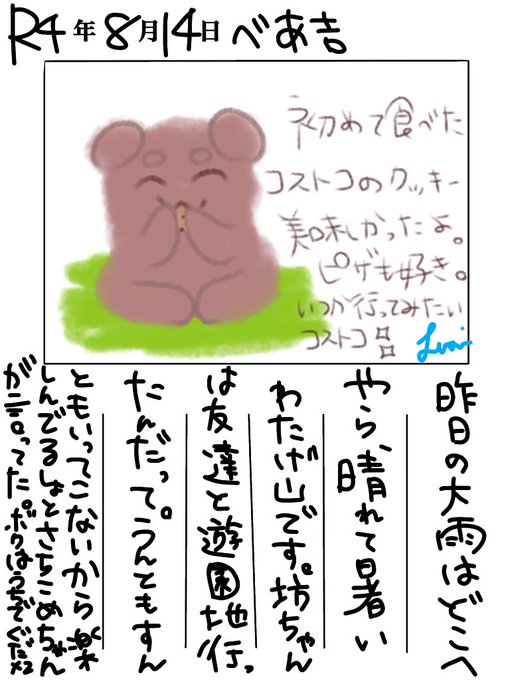 R4年8月14日 べあ吉
初めて食べた
コストコのクッキー
美味しかったよ。
ピザも好き。
いつか行ってみたい
コストコ
昨日の大雨はどこへ
やら、晴れて暑い
わたげ山です。坊ちゃん
は友達と遊園地行っ
たんだって。うんともすん
ともいってこないから楽
しんでるしょとさちこめちゃん
が言ってた。ボクはうちでぐだぐだ